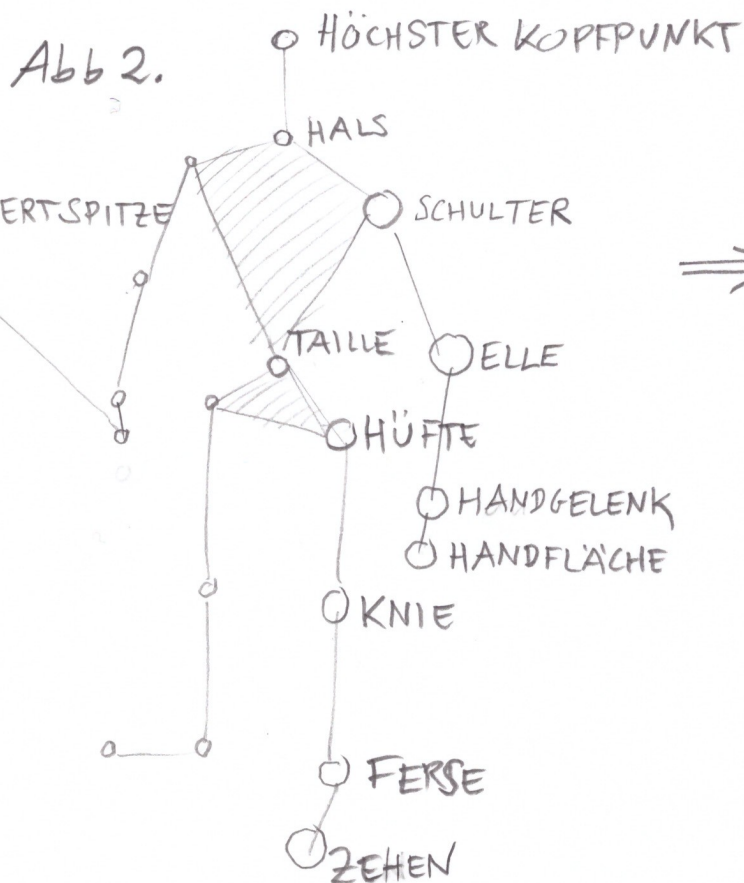 HÖCHSTER KOPFPUNKT
Abb 2.
HALS
ERTSPITZE
SCHULTER
TAILLE
ELLE
HÜFTE
HANDGELENK
HANDFLÄCHE
KNIE
FERSE
ZEHEN